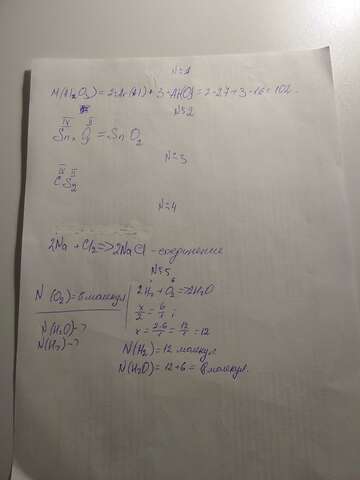 N=1
M(Al₂O₃) = 2·Ar(Al) + 3·Ar(O) = 2·27 + 3·16 = 102.
N=2
IV II
SnₓOᵧ = SnO₂
N=3
IV II
CS₂
N=4
2Na + Cl₂ => 2NaCl - соединение
N=5
N(O₂) = 6 молекул
2H₂ + O₂ => 2H₂O
x/2 = 6/1;
N(H₂O) - ?
x = 2·6/1 = 12/1 = 12
N(H₂) - ?
N(H₂) = 12 молекул
N(H₂O) = 12 + 6 = 8 молекул.